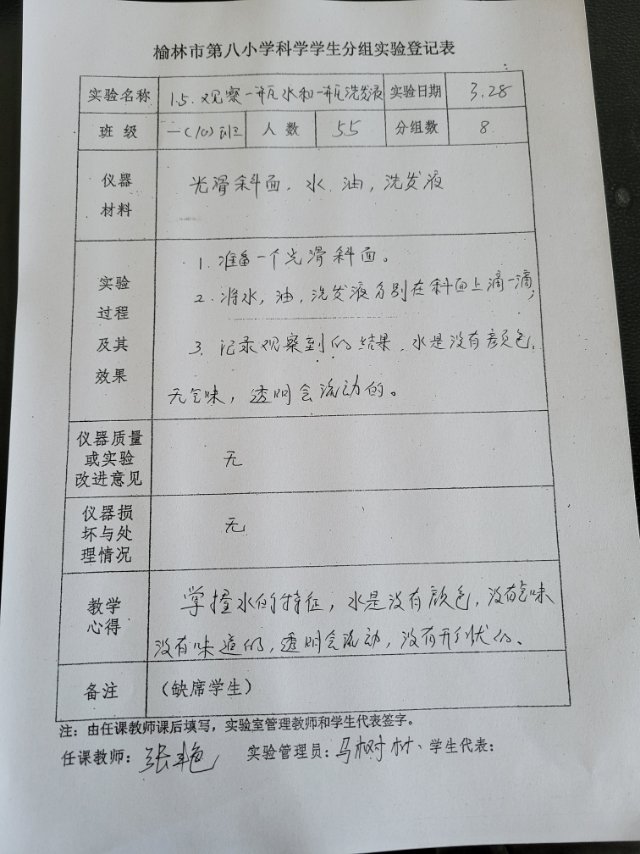 榆林市第八小学科学学生分组实验登记表
实验名称 1.5.观察一瓶水和一瓶洗发液 实验日期 3.28
班级 一(10)班 人数 55 分组数 8
仪器
材料
光滑斜面.水.油,洗发液
实验
过程
及其
效果
1.准备一个光滑斜面。
2.将水,油,洗发液分别在斜面上滴一滴;
3.记录观察到的结果.水是没有颜色,
无气味,透明会流动的。
仪器质量
或实验
改进意见
无
仪器损
坏与处
理情况
无
教学
心得
掌握水的特征,水是没有颜色,没有气味
没有味道的,透明会流动,没有形状的、
备注 (缺席学生)
注:由任课教师课后填写,实验室管理教师和学生代表签字。
任课教师:张艳 实验管理员:马树林、学生代表: